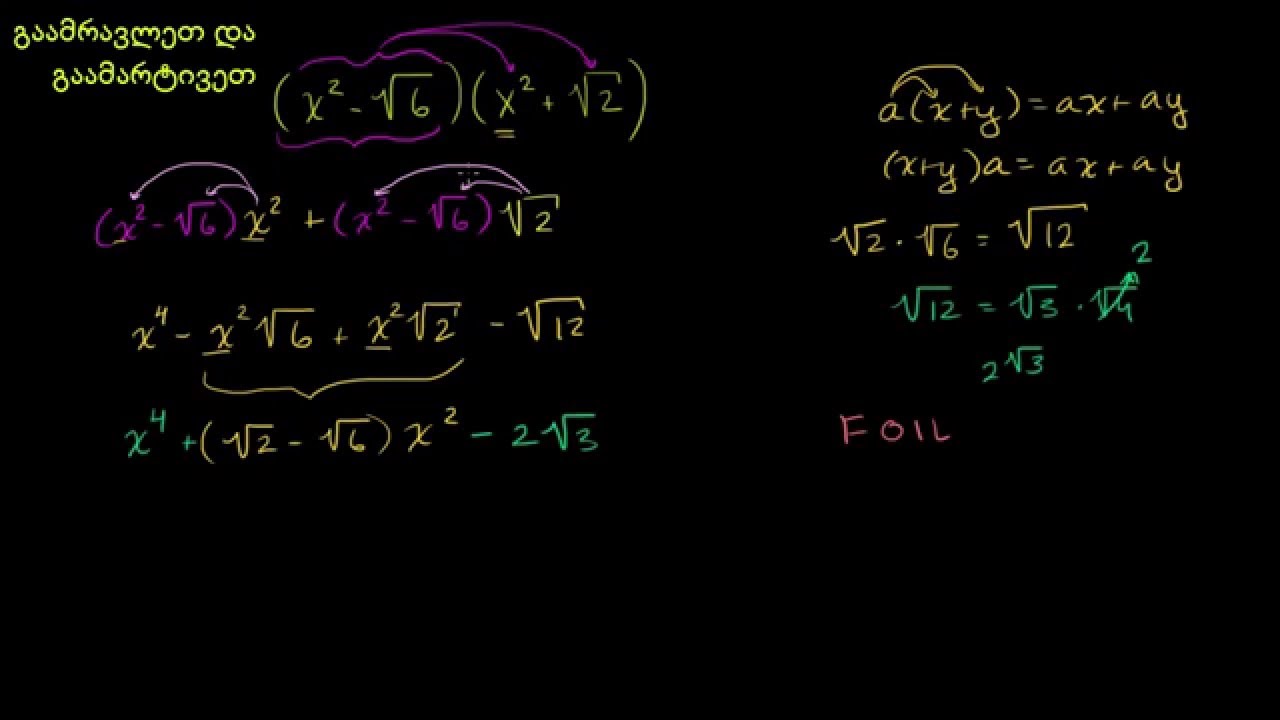 გაამრავლეთ და
გაამარტივეთ
(x² - √6)(x² + √2)
(x² - √6)x² + (x² - √6)√2
x⁴ - x²√6 + x²√2 - √12
x⁴ + (√2 - √6)x² - 2√3
a(x+y) = ax + ay
(x+y)a = ax + ay
√2 · √6 = √12
2
√12 = √3 · √4
2√3
FOIL